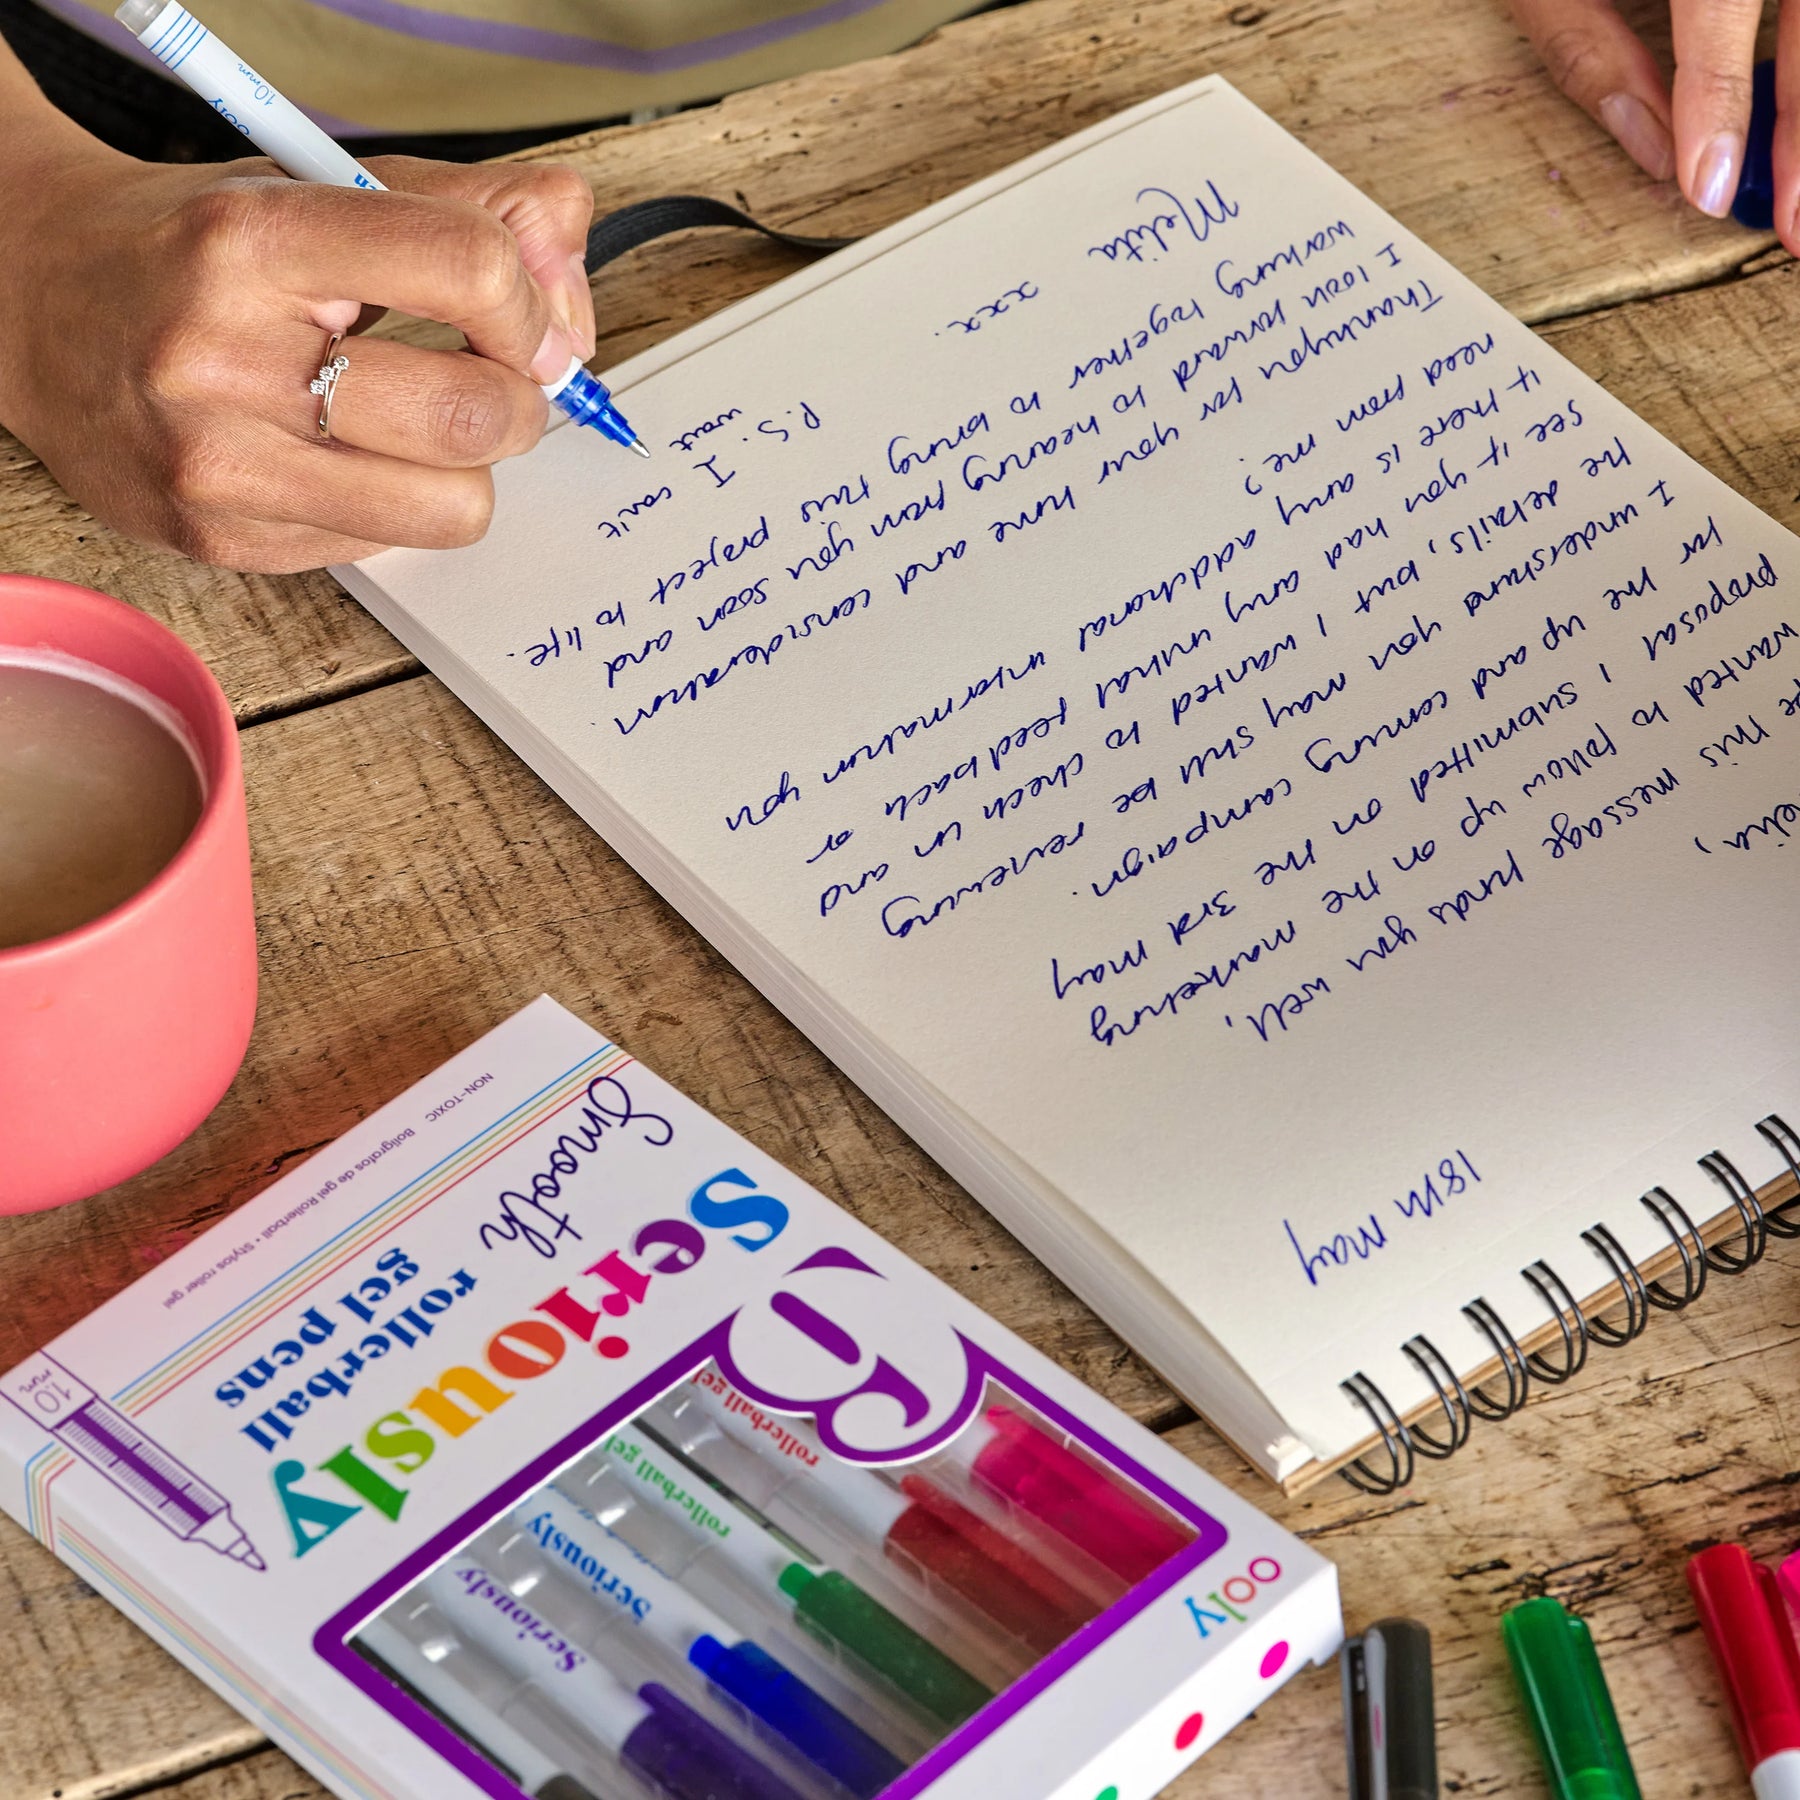 18th May
,
pe this message finds you well,
wanted to follow up on the marketing
proposal I submitted on the 3rd May
for the up and coming campaign.
I understand you may still be reviewing
the details, but I wanted to check in and
see if you had any initial feedback or
if there is any additional information you
need from me?
Thankyou for your time and consideration.
I look forward to hearing from you soon and
working together to bring this project to life.
Melita
xxx.
P.S. I can't
wait
ooly
1.0mm
Smooth
Seriously
rollerball
gel pens
NON-TOXIC
Bolígrafos de gel Rollerball • Stylos roller gel
1.0
mm
6
rollerball gel
rollerball gel
Seriously
Seriously
ooly